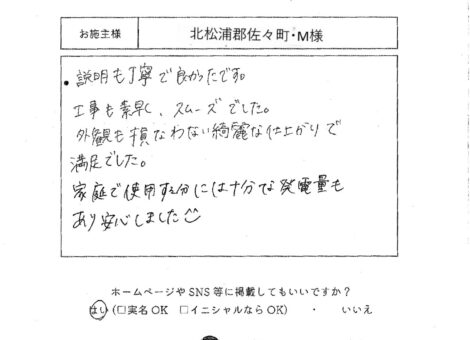 お施主様 北松浦郡佐々町・M様
・説明も丁寧で良かったです。
工事も素早く、スムーズでした。
外観も損なわない綺麗な仕上がりで
満足でした。
家庭で使用する分には十分な発電量も
あり安心しました
ホームページやSNS等に掲載してもいいですか?
はい (□実名OK □イニシャルならOK) ・ いいえ